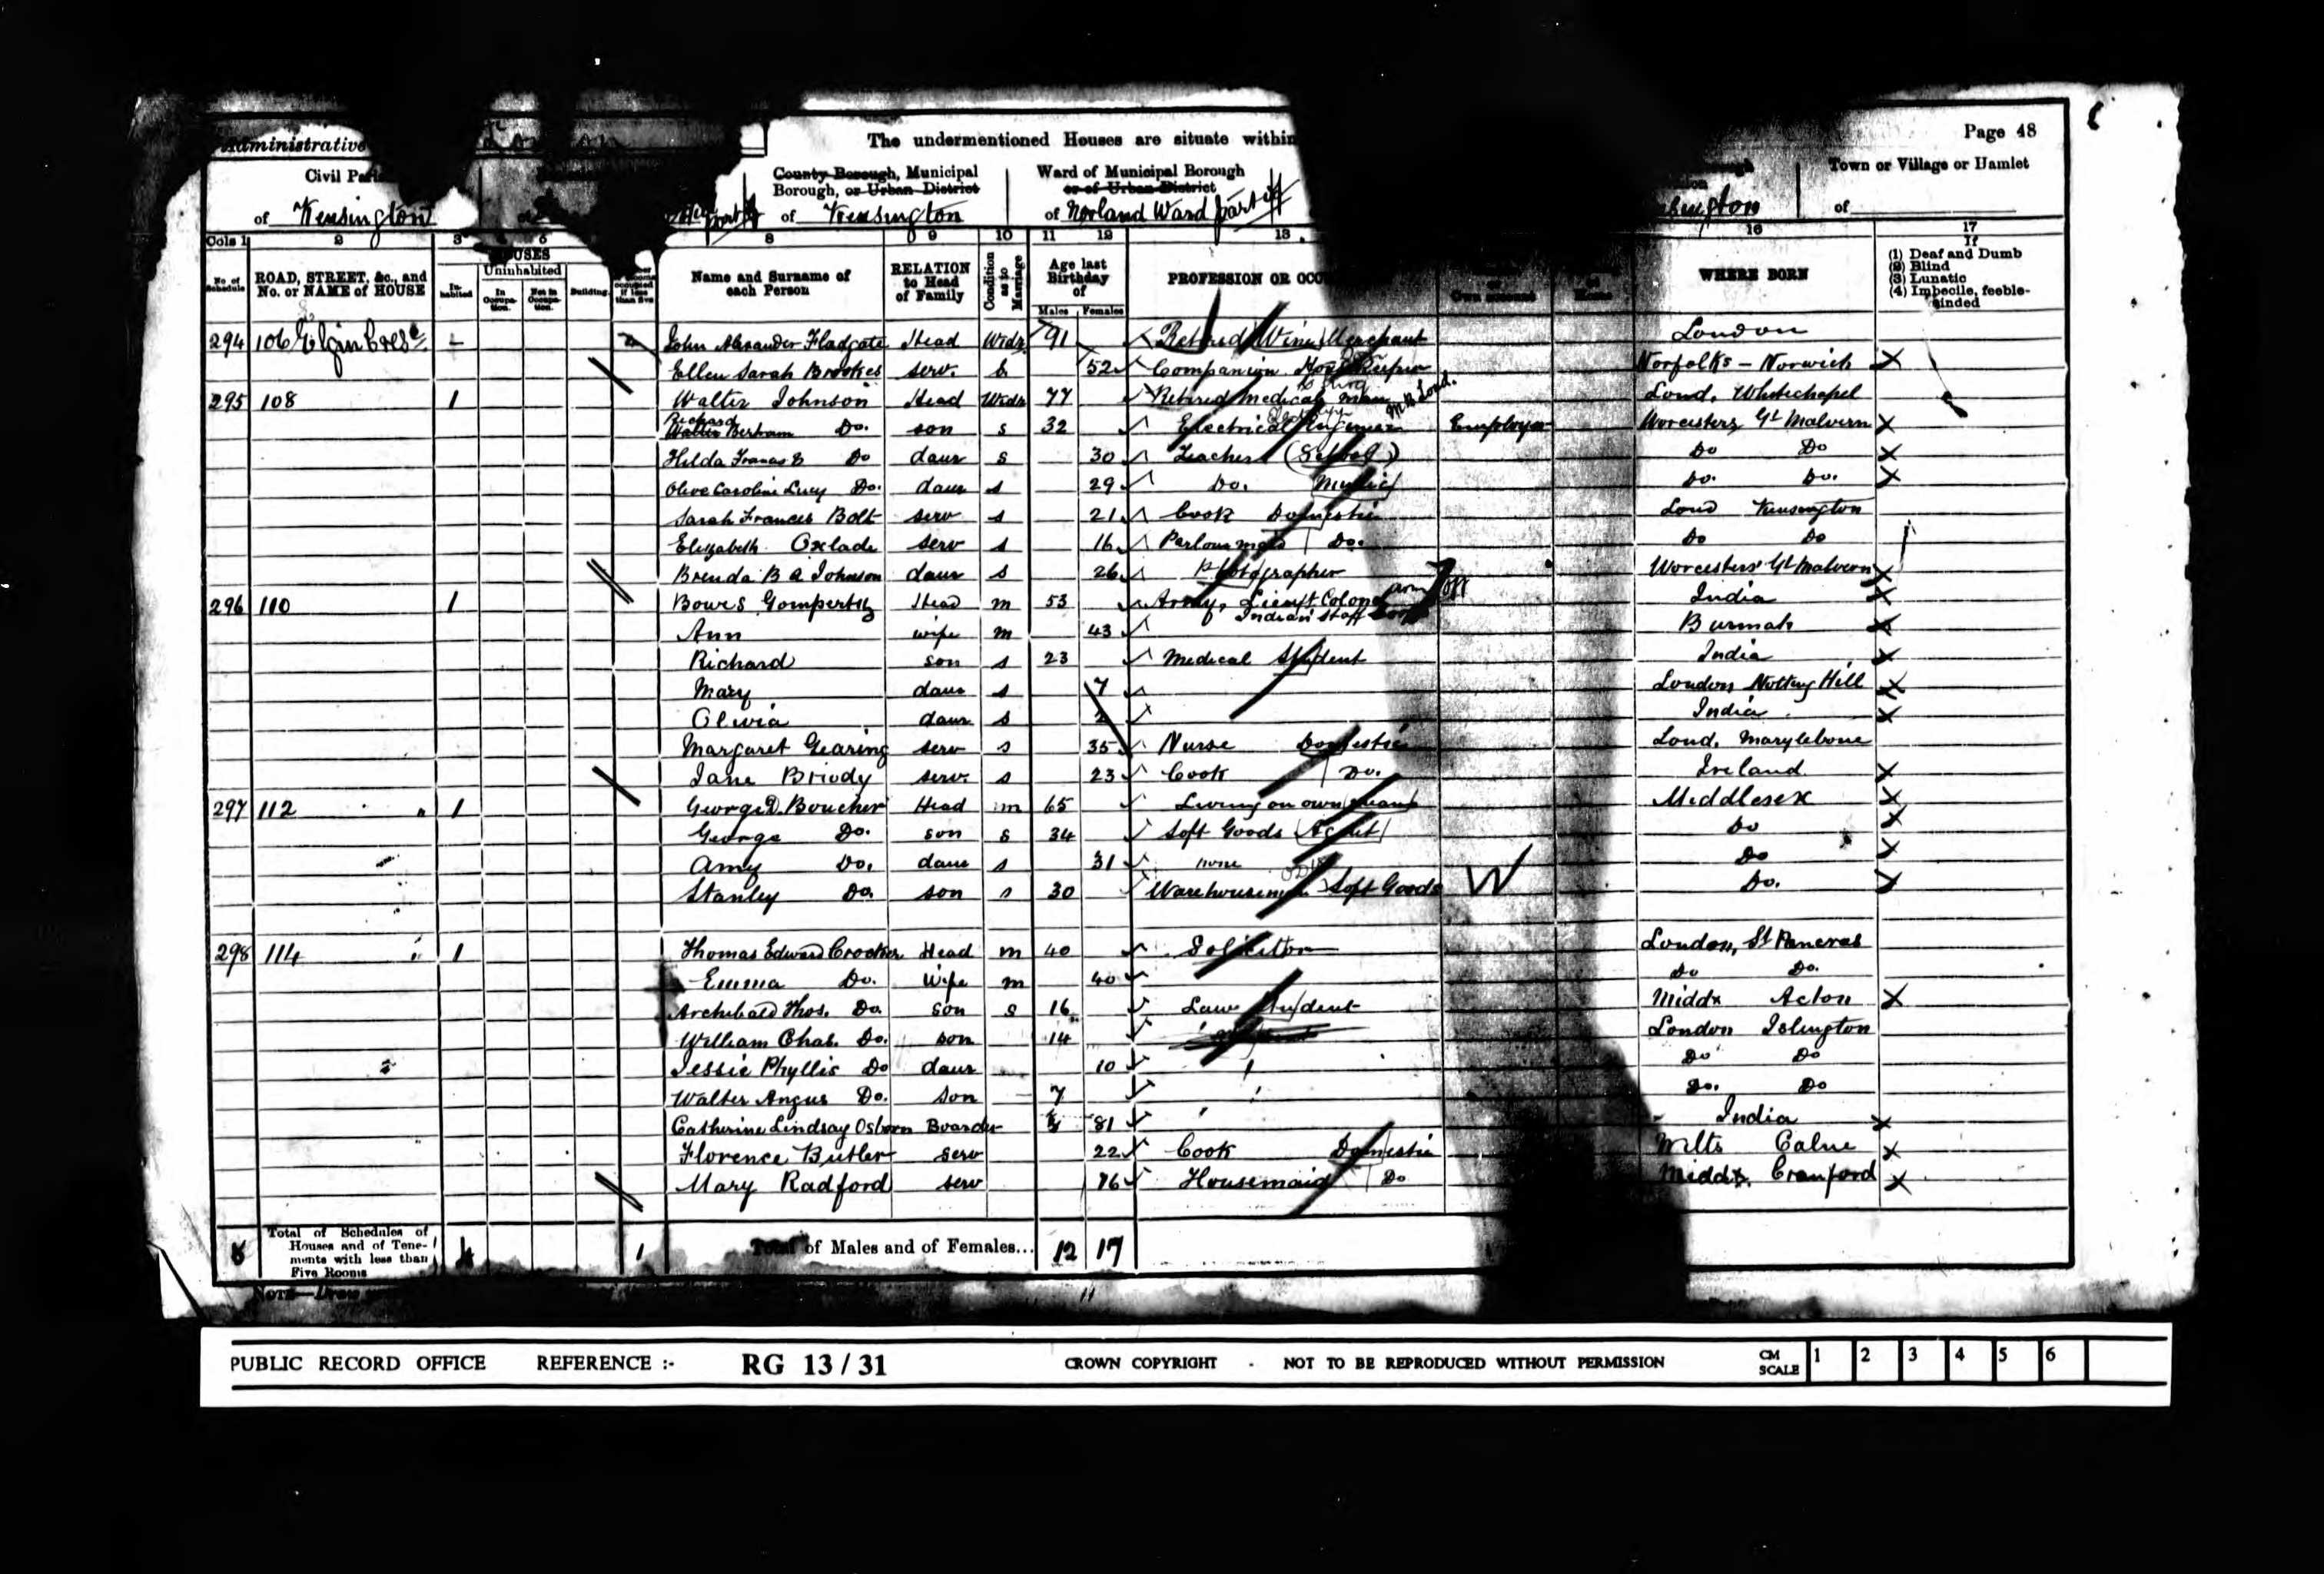 Administrative
The undermentioned Houses are situate within
Page 48
Civil
of Kensington
County Borough, Municipal Borough, or Urban District
of Kensington
Ward of Municipal Borough or of Urban District
of Norland Ward part of
Town or Village or Hamlet
of
Cols 1 2 3 6 8 9 10 11 12 13 16 17
No. of Schedule
ROAD, STREET, &c., and No. or NAME of HOUSE
HOUSES
Inhabited
Uninhabited
In Occupation.
Not in Occupation.
Building.
Name and Surname of each Person
RELATION to Head of Family
Condition as to Marriage
Age last Birthday of
Males Females
PROFESSION OR
Own account
WHERE BORN
If
(1) Deaf and Dumb
(2) Blind
(3) Lunatic
(4) Imbecile, feeble-minded
294 106 Elgin Cresc. John Alexander Fladgate Head Widr 91 Retired Wine Merchant London
Ellen Sarah Brookes serv. 52 Companion Norfolks - Norwich
295 108 1 Walter Johnson Head Widr 77 Retired medical man M.B. Lond. Lond. Whitechapel
Richard Walter Bertram Do. son s 32 Electrical Engineer Employer Worcesters Gt Malvern
Hilda Frances E Do daur s 30 Teacher (School) Do Do
Olive Caroline Lucy Do. daur s 29 Do. Music Do. Do.
Sarah Frances Bolt serv s 21 Cook Domestic Lond Kensington
Elizabeth Oxlade serv s 16 Parlourmaid Do. Do Do
Brenda B A Johnson daur s 26 Photographer Worcesters Gt Malvern
296 110 1 Bowes Gompertz Head m 53 Army, Lieut Colonel India
Indian Staff Corps
Ann wife m 43 Burmah
Richard son s 23 Medical Student India
Mary daur s 7 London Notting Hill
Olivia daur s 2 India
Margaret Gearing serv s 35 Nurse Domestic Lond. Marylebone
Jane Briody serv. s 23 Cook Do. Ireland
297 112 " 1 George D. Boucher Head m 65 Living on own means Middlesex
George Do. son s 34 Soft Goods Agent Do
Amy Do. daur s 31 none Do
Stanley Do. son s 30 Warehouseman Soft Goods W Do.
298 114 " 1 Thomas Edward Crocker Head m 40 Solicitor London, St Pancras
Emma Do. Wife m 40 Do Do.
Archibald Thos. Do. son s 16 Law Student Middx Acton
William Chas. Do. son 14 London Islington
Jessie Phyllis Do daur 10 Do Do
Walter Angus Do. son 7 Do. Do
Catherine Lindsay Osborn Boarder 81 India
Florence Butler serv 22 Cook Domestic Wilts Calne
Mary Radford serv 16 Housemaid Do Middx. Cranford
5 Total of Schedules of Houses and of Tenements with less than Five Rooms 4 1 Total of Males and of Females... 12 17
NOTE—Draw
PUBLIC RECORD OFFICE REFERENCE :- RG 13/31 CROWN COPYRIGHT - NOT TO BE REPRODUCED WITHOUT PERMISSION CM SCALE 1 2 3 4 5 6